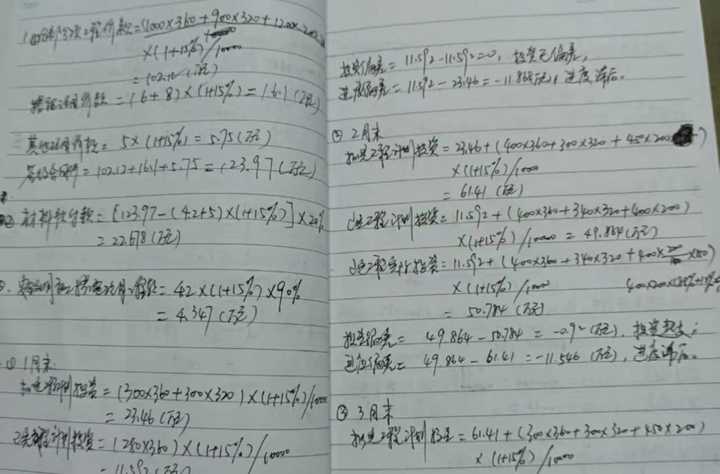 (1000×360+900×320+1200×200)
×(1+15%)/10000
=102.12(万元)
措施项目价款=(6+8)×(1+15%)=16.1(万元)
其他项目价款=5×(1+15%)=5.75(万元)
签约合同价=102.12+16.1+5.75=123.97(万元)
材料预付款=[123.97-(4.2+5)×(1+15%)]×20%
=22.678(万元)
=4.2×(1+15%)×90%
=4.347(万元)
① 1月末
拟完工程计划投资=(300×360+300×320)×(1+15%)/10000
=23.46(万元)
已完工程计划投资=(280×360)×(1+15%)/10000
=11.592(万元)
投资偏差=11.592-11.592=0,投资无偏差,
进度偏差=11.592-23.46=-11.868万元,进度滞后。
② 2月末
拟完工程计划投资=23.46+(400×360+300×320+450×200)
×(1+15%)/10000
=61.41(万元)
已完工程计划投资=11.592+(400×360+340×320+400×200)
×(1+15%)/10000=49.864(万元)
已完工程实际投资=11.592+(400×360+340×320+400×
×(1+15%)/10000
=50.784(万元)
投资偏差=49.864-50.784=-0.92(万元),投资超支;
进度偏差=49.864-61.41=-11.546(万元),进度滞后。
③ 3月末
拟完工程计划投资=61.41+(300×360+300×320+450×200)
×(1+15%)/10000